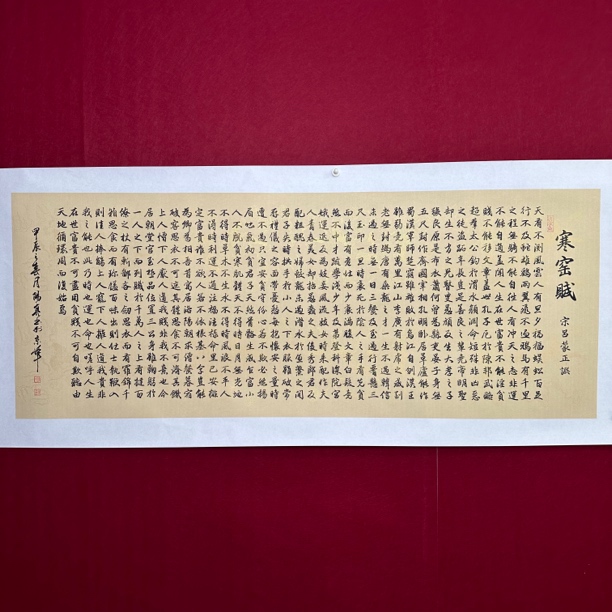 寒窯賦
宋 呂蒙正 撰
天有不測風雲人有旦夕禍福蜈蚣百足
行不及蛇雄雞兩翼飛不過鴉馬有千里
之程無騎不能自往人有沖天之志非運
不能自通蓋聞人生在世富貴不能淫貧
賤不能移文章蓋世孔子厄於陳邦武略
超群太公釣於渭水顏淵命短殊非凶惡
之徒盜跖年長豈是善良之輩堯帝明聖
却生不肖之兒瞽叟愚頑反生大孝之子
張良原是布衣蕭何曾為縣吏晏子身無
五尺封作齊國宰相孔明卧居草廬能作
蜀漢軍師楚霸雖雄敗於烏江自刎漢王
雖弱竟有萬里江山李廣有射虎之威到
老無封馮唐有乘龍之才一生不遇韓信
未遇之時無一日三餐及至遇行腰懸三
尺玉印一旦時衰死於陰人之手有先貧
而後富有老壯而少衰滿腹文章白髮竟
然不中才疏學淺少年登科深院宮
娥運退反為妓妾風流妓女時來配作夫
人青春美女却招愚蠢之夫俊秀郎君反
配粗醜之婦蛟龍未遇潛水於魚鱉之間
君子失時拱手於小人之下衣服雖破常
存禮儀之容面帶憂愁每抱懷安之量時
遭不遇只宜安貧守份心若不欺必然揚
眉吐氣初貧君子天然骨骼生成乍富小
人不脫貧寒肌體天不得時日月無光地
不得時草木不生水不得時風浪不平人
不得時利運不通注福注祿命里已安排
定富貴誰不欲人若不依根基八字豈能
為卿為相吾昔寓居洛陽朝求僧餐暮宿
破窑思衣不可遮其體思食不可濟其饑
上人憎下人厭人道我賤非我不棄也今
居朝堂官至極品位置三公身雖鞠躬於
一人之下而列職於千萬人之上有撻百
僚之杖有斬鄙吝之劍思衣而有羅錦千
箱思食而有珍饈百味出則壯士執鞭入
則佳人捧觴上人寵下人擁人道我貴非
我之能也此乃時也運也命也嗟呼人生
在世富貴不可盡用貧賤不可自欺聽由
天地循環周而復始焉
甲辰之